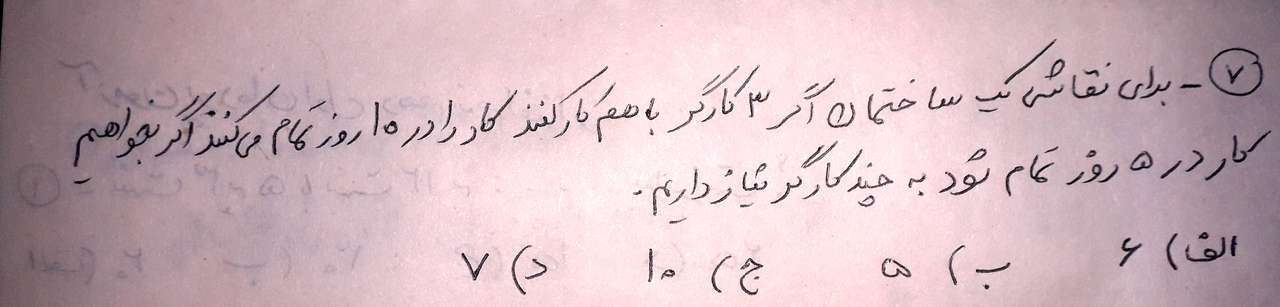 ۷- برای نقاشی یک ساختمان اگر ۳ کارگر با هم کار کنند کار را در ۱۰ روز تمام می‌کنند اگر بخواهیم
کار در ۵ روز تمام شود به چند کارگر نیاز داریم.
الف) ۶ ب) ۵ ج) ۱۰ د) ۷